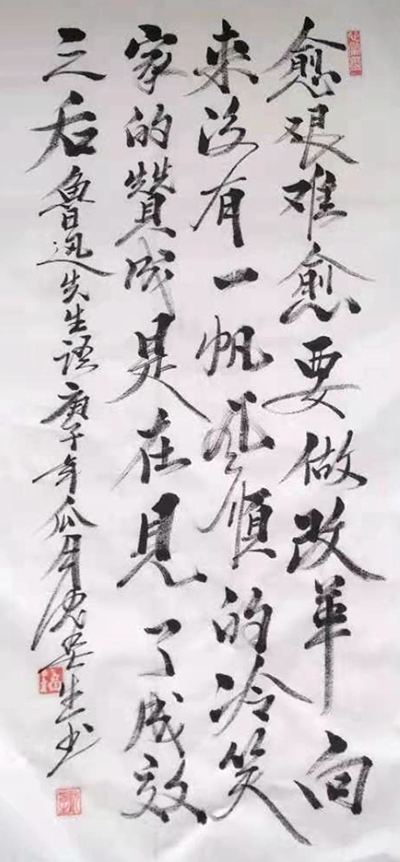 愈艰难愈要做改革向
来没有一帆风顺的冷笑
家的赞成是在见了成效
之后鲁迅先生语庚子年瓜月岳生书